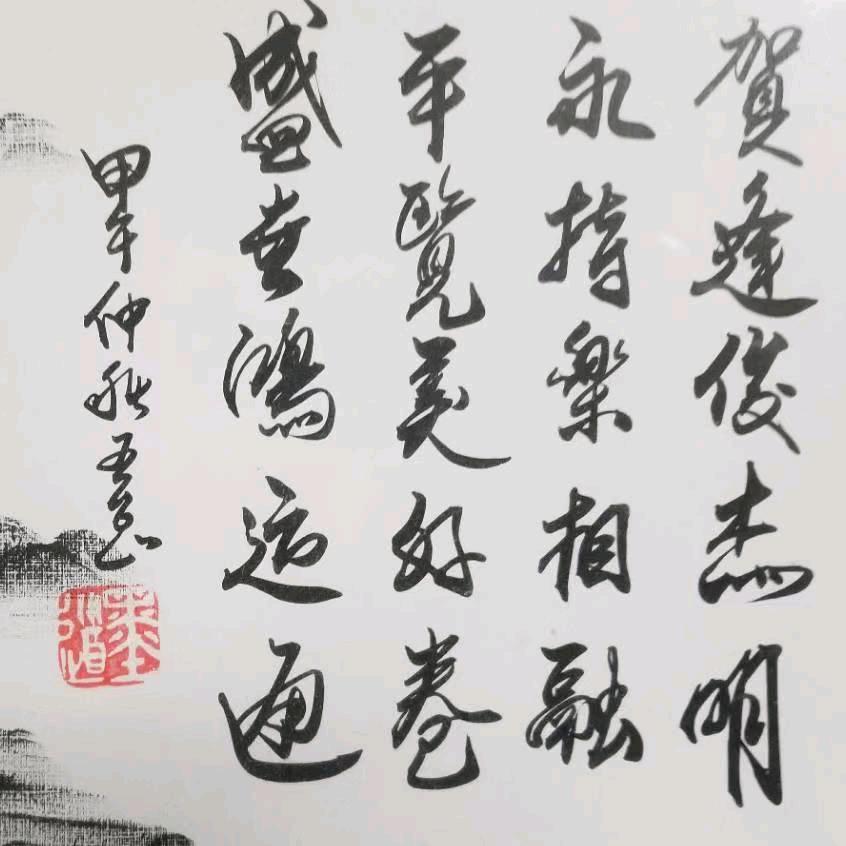 賀逢俊杰明
永持樂相融
平覽美好卷
盛世鴻運通
甲午仲秋